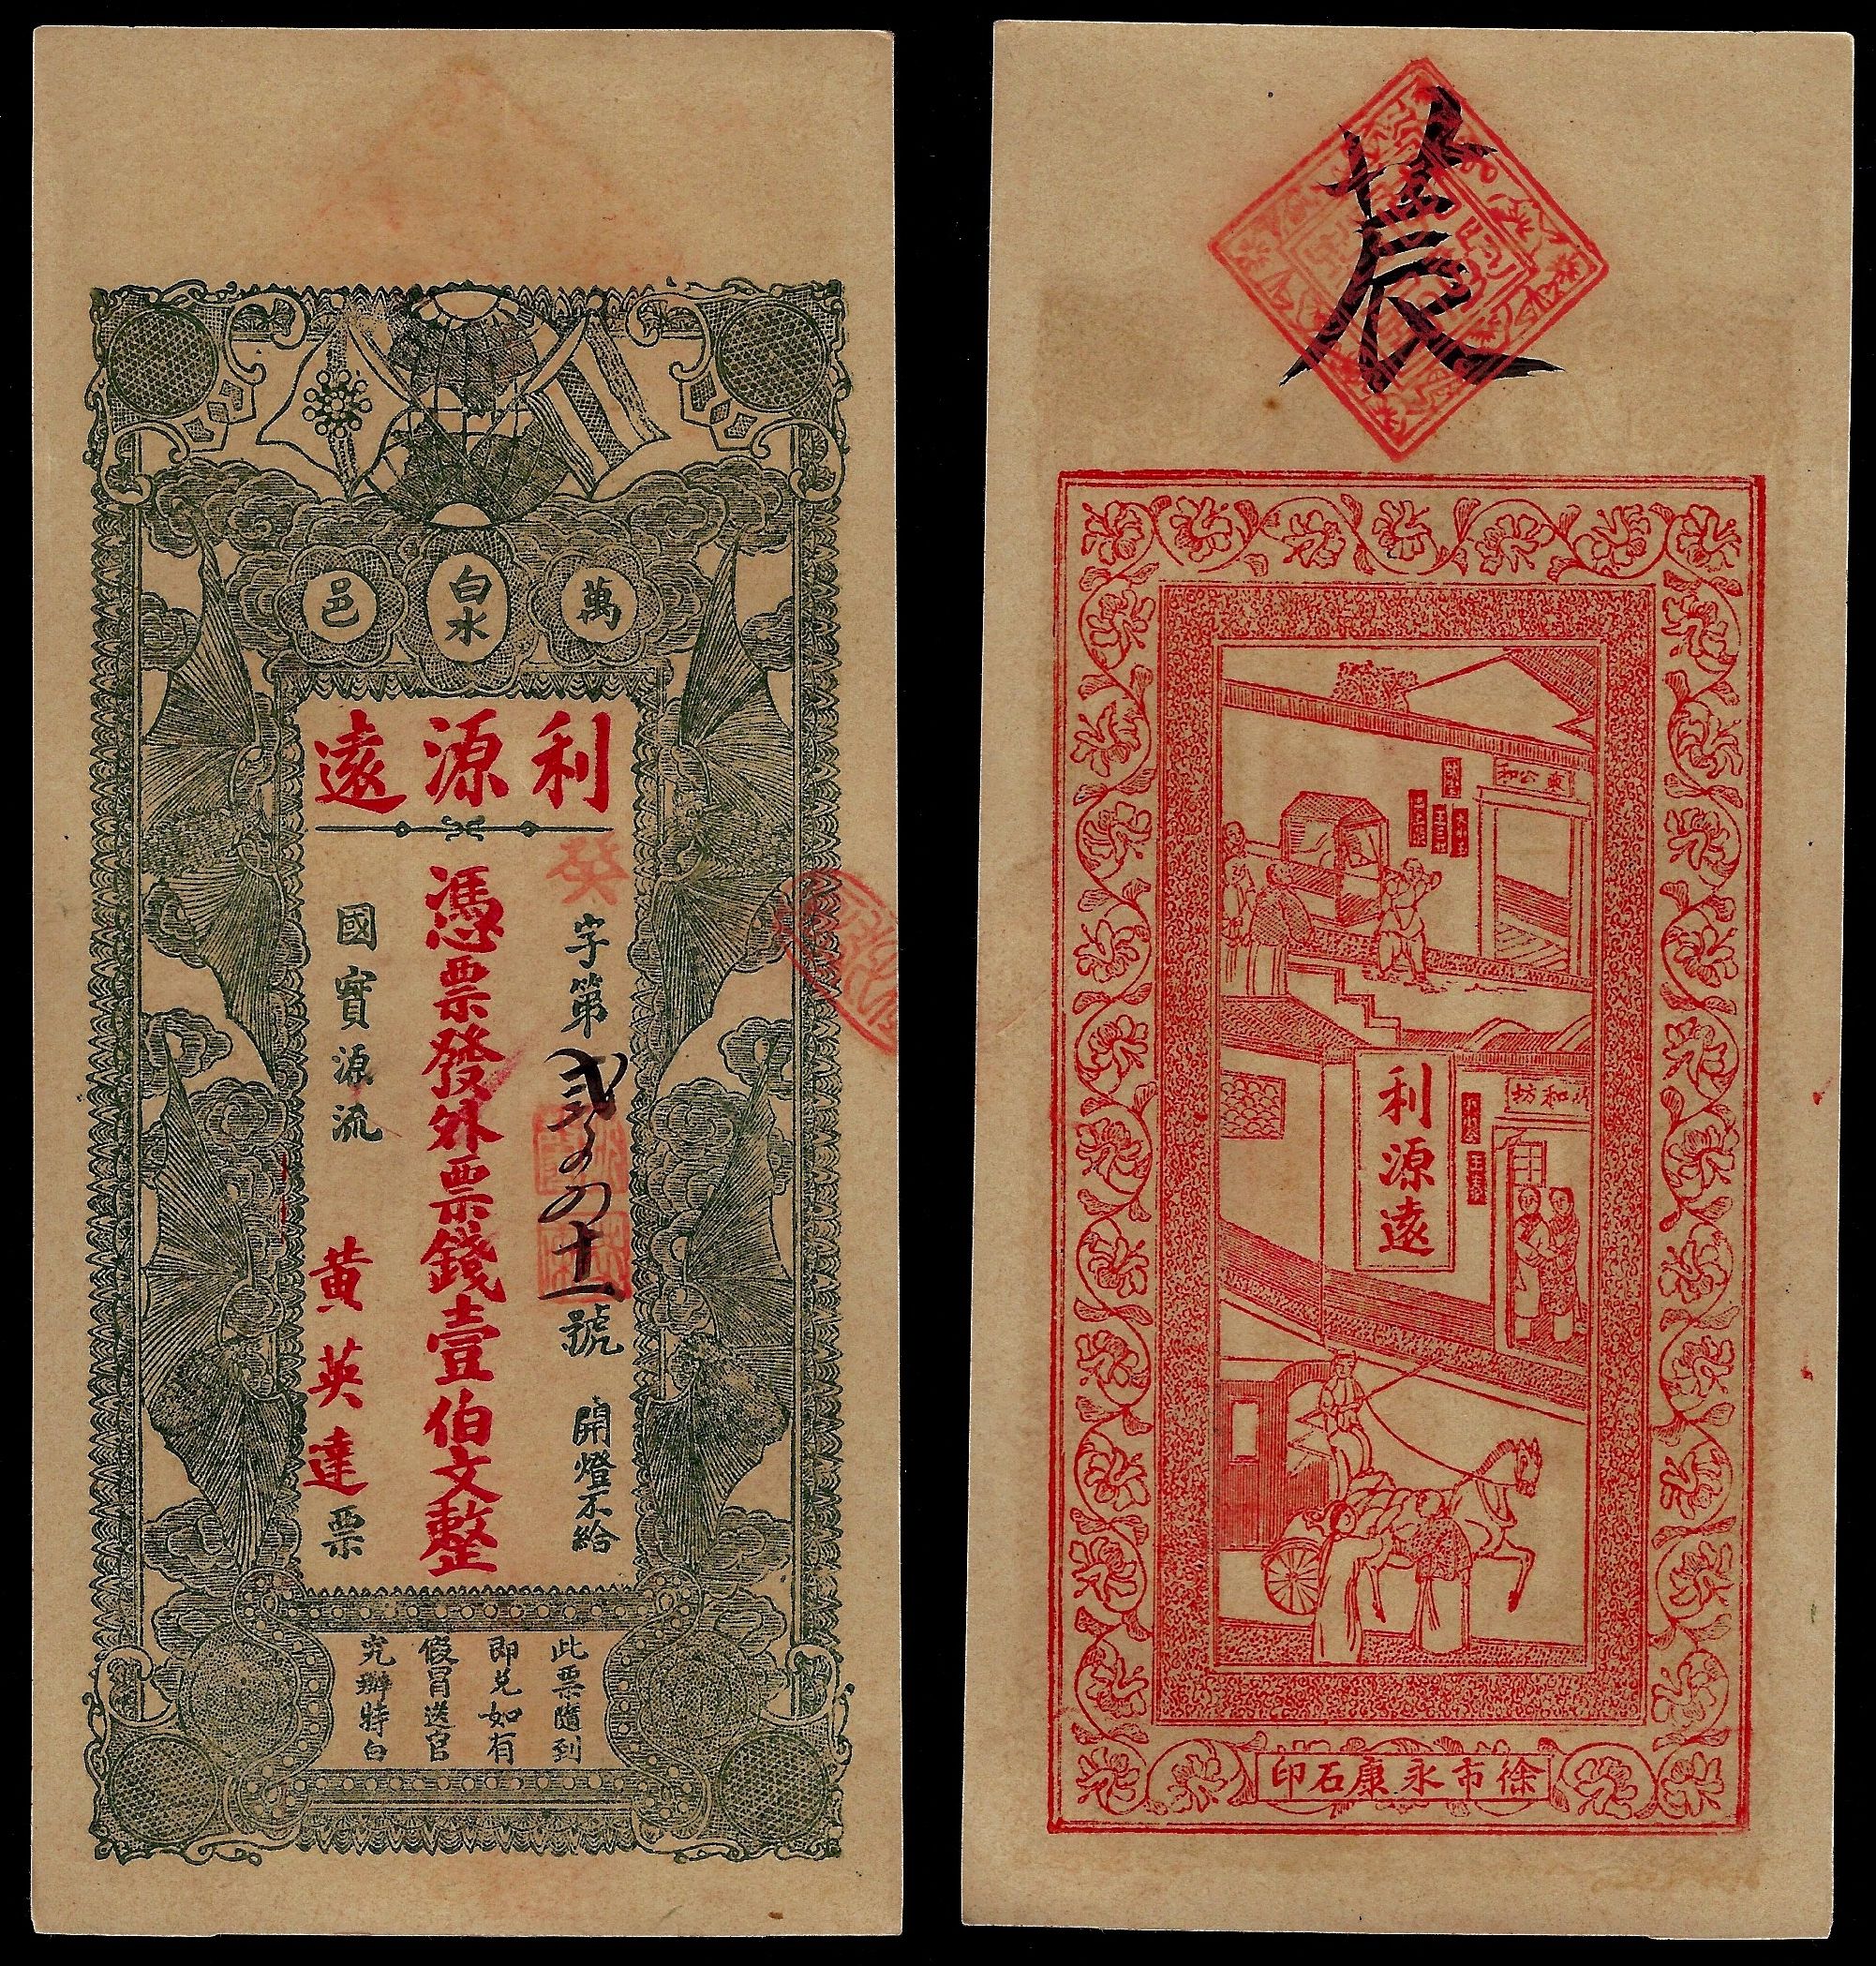 萬泉邑
利源遠
癸字第貳百四十一號 開燈不給
憑票發外票錢壹伯文整
國寶源流 黃英達票
此票隨到
即兌如有
假冒送官
究辦特白
東公和
利源遠
徐市永康石印